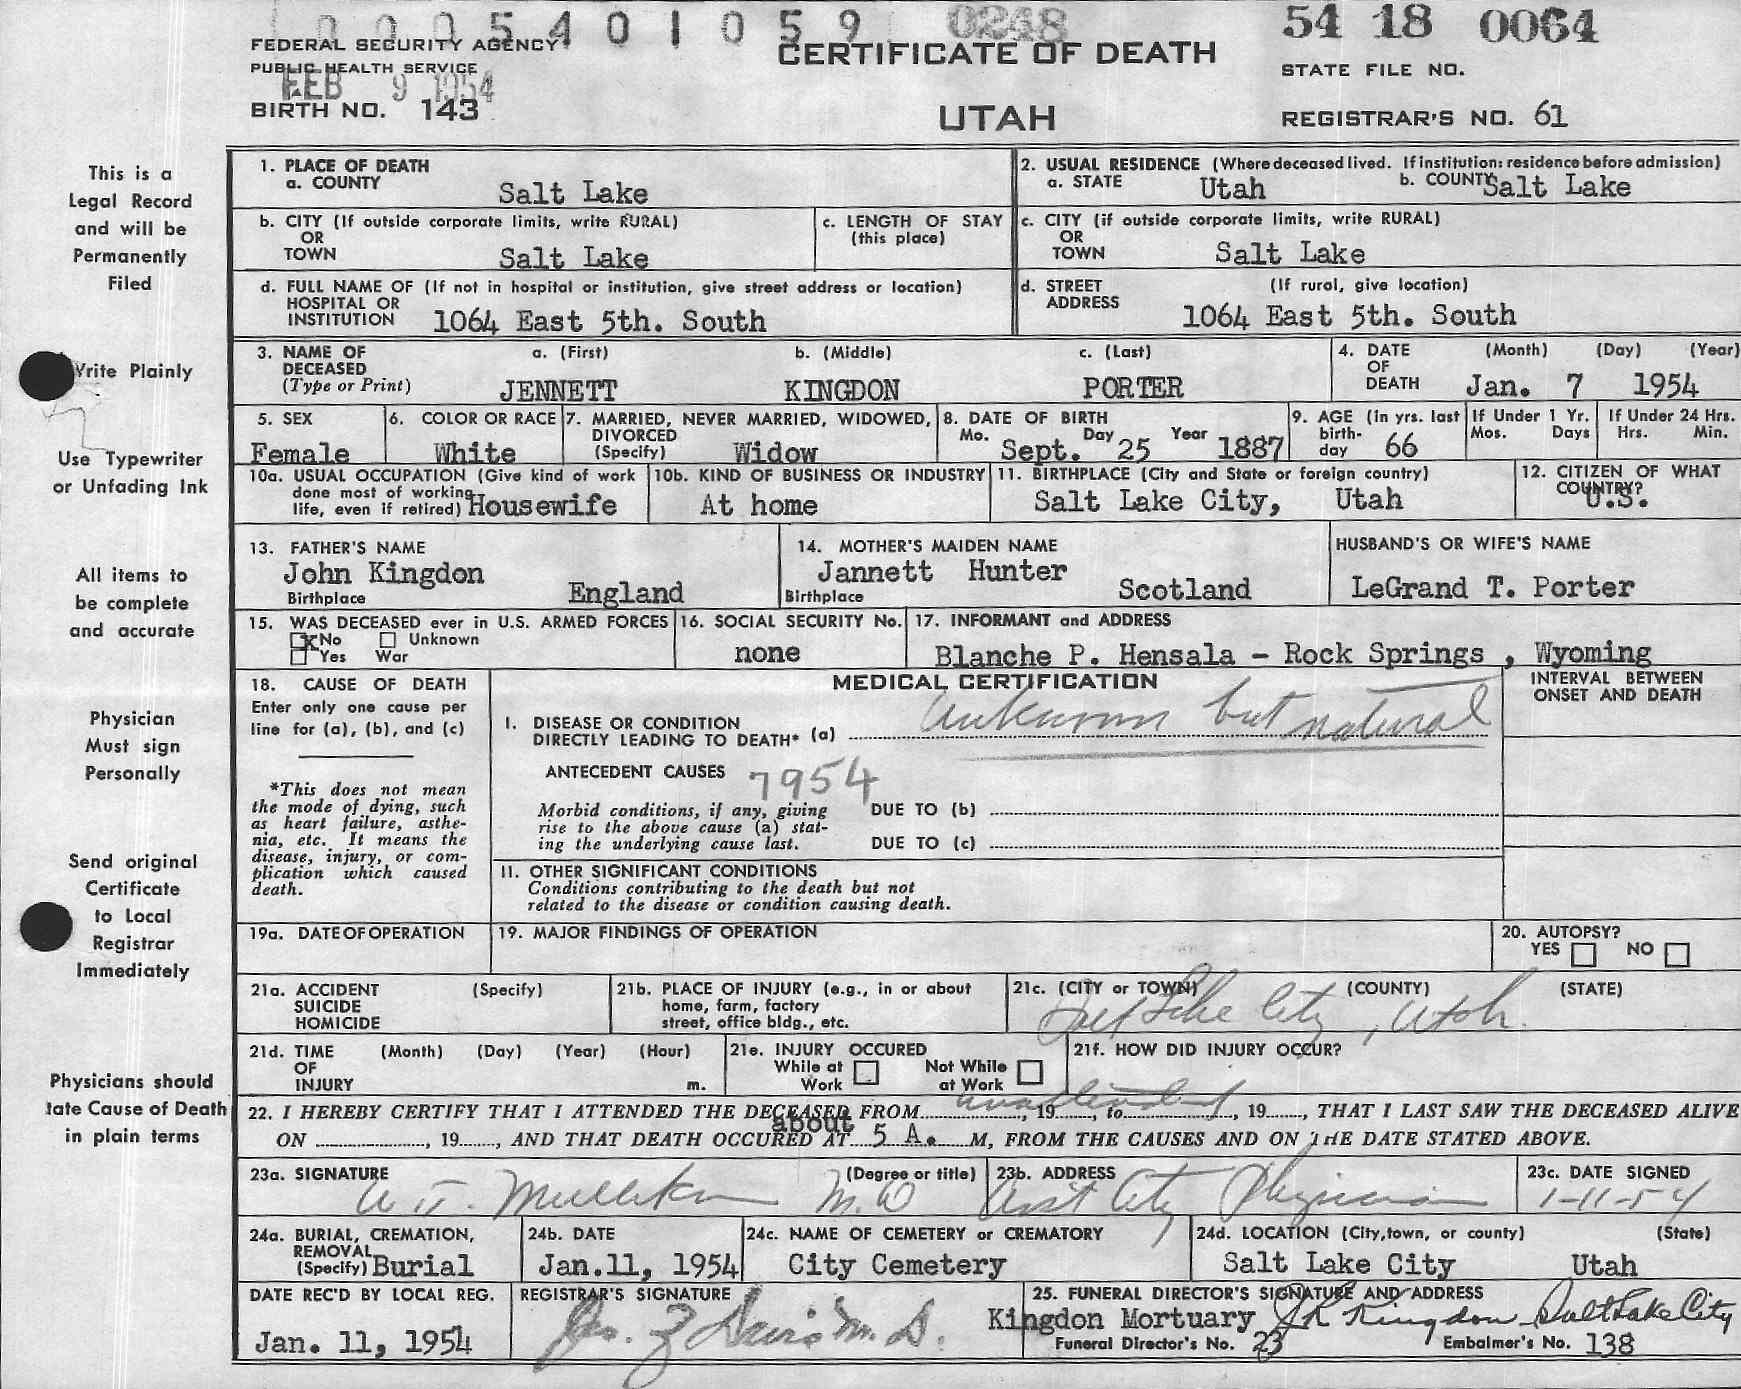 0005401059 0248 54 18 0064
FEDERAL SECURITY AGENCY
PUBLIC HEALTH SERVICE
FEB 9 1954
BIRTH NO. 143
CERTIFICATE OF DEATH
UTAH
STATE FILE NO.
REGISTRAR'S NO. 61
This is a
Legal Record
and will be
Permanently
Filed
Write Plainly
Use Typewriter
or Unfading Ink
All items to
be complete
and accurate
Physician
Must sign
Personally
Send original
Certificate
to Local
Registrar
Immediately
Physicians should
tate Cause of Death
in plain terms
1. PLACE OF DEATH
a. COUNTY Salt Lake
b. CITY (If outside corporate limits, write RURAL)
OR
TOWN Salt Lake
c. LENGTH OF STAY
(this place)
d. FULL NAME OF (If not in hospital or institution, give street address or location)
HOSPITAL OR
INSTITUTION 1064 East 5th. South
2. USUAL RESIDENCE (Where deceased lived. If institution: residence before admission)
a. STATE Utah b. COUNTY Salt Lake
c. CITY (if outside corporate limits, write RURAL)
OR
TOWN Salt Lake
d. STREET (If rural, give location)
ADDRESS 1064 East 5th. South
3. NAME OF a. (First) b. (Middle) c. (Last)
DECEASED
(Type or Print) JENNETT KINGDON PORTER
4. DATE (Month) (Day) (Year)
OF
DEATH Jan. 7 1954
5. SEX
Female
6. COLOR OR RACE
White
7. MARRIED, NEVER MARRIED, WIDOWED,
DIVORCED
(Specify) Widow
8. DATE OF BIRTH
Mo. Sept. Day 25 Year 1887
9. AGE (In yrs. last
birth-
day 66
If Under 1 Yr.
Mos. Days
If Under 24 Hrs.
Hrs. Min.
10a. USUAL OCCUPATION (Give kind of work
done most of working
life, even if retired) Housewife
10b. KIND OF BUSINESS OR INDUSTRY
At home
11. BIRTHPLACE (City and State or foreign country)
Salt Lake City, Utah
12. CITIZEN OF WHAT
COUNTRY?
U.S.
13. FATHER'S NAME
John Kingdon
Birthplace England
14. MOTHER'S MAIDEN NAME
Jannett Hunter
Birthplace Scotland
HUSBAND'S OR WIFE'S NAME
LeGrand T. Porter
15. WAS DECEASED ever in U.S. ARMED FORCES
X No Unknown
Yes War
16. SOCIAL SECURITY No.
none
17. INFORMANT and ADDRESS
Blanche P. Hensala - Rock Springs , Wyoming
18. CAUSE OF DEATH
Enter only one cause per
line for (a), (b), and (c)
*This does not mean
the mode of dying, such
as heart failure, asthe-
nia, etc. It means the
disease, injury, or com-
plication which caused
death.
MEDICAL CERTIFICATION
INTERVAL BETWEEN
ONSET AND DEATH
I. DISEASE OR CONDITION
DIRECTLY LEADING TO DEATH* (a) Unknown but natural
ANTECEDENT CAUSES 7954
Morbid conditions, if any, giving DUE TO (b)
rise to the above cause (a) stat-
ing the underlying cause last. DUE TO (c)
11. OTHER SIGNIFICANT CONDITIONS
Conditions contributing to the death but not
related to the disease or condition causing death.
19a. DATE OF OPERATION
19. MAJOR FINDINGS OF OPERATION
20. AUTOPSY?
YES NO
21a. ACCIDENT (Specify)
SUICIDE
HOMICIDE
21b. PLACE OF INJURY (e.g., in or about
home, farm, factory
street, office bldg., etc.
21c. (CITY or TOWN) (COUNTY) (STATE)
Salt Lake City, Utah.
21d. TIME (Month) (Day) (Year) (Hour)
OF
INJURY m.
21e. INJURY OCCURED
While at Work Not While at Work
21f. HOW DID INJURY OCCUR?
22. I HEREBY CERTIFY THAT I ATTENDED THE DECEASED FROM unattended, 19, to, 19, THAT I LAST SAW THE DECEASED ALIVE
ON, 19, AND THAT DEATH OCCURED AT about 5 A. M, FROM THE CAUSES AND ON THE DATE STATED ABOVE.
23a. SIGNATURE (Degree or title)
M.D
23b. ADDRESS
Asst City Physician
23c. DATE SIGNED
1-11-54
24a. BURIAL, CREMATION,
REMOVAL
(Specify) Burial
24b. DATE
Jan.11, 1954
24c. NAME OF CEMETERY or CREMATORY
City Cemetery
24d. LOCATION (City,town, or county) (State)
Salt Lake City Utah
DATE REC'D BY LOCAL REG.
Jan. 11, 1954
REGISTRAR'S SIGNATURE
Davis M. D.
25. FUNERAL DIRECTOR'S SIGNATURE AND ADDRESS
Kingdon Mortuary JR Kingdon Salt Lake City
Funeral Director's No. 23 Embalmer's No. 138